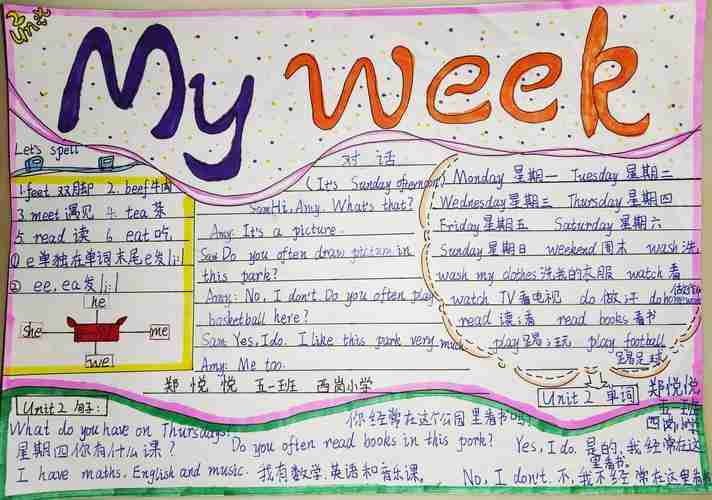 2 Unit
My Week
Let's spell
1. feet 双脚 2. beef 牛肉
3. meet 遇见 4. tea 茶
5. read 读 6. eat 吃
① e单独在单词末尾e发/i:/
② ee, ea发/i:/
he
she
me
we
对话
(It's Sunday afternoon)
Sam: Hi, Amy. What's that?
Amy: It's a picture.
Sam: Do you often draw picture in
this park?
Amy: No, I don't. Do you often play
basketball here?
Sam: Yes, I do. I like this park very much
Amy: Me too.
Monday 星期一 Tuesday 星期二
Wednesday 星期三 Thursday 星期四
Friday 星期五 Saturday 星期六
Sunday 星期日 weekend 周末 wash 洗
wash my clothes 洗我的衣服 watch 看
watch TV 看电视 do 做;干 do homework 做作业
read 读;看 read books 看书
play 踢;玩 play football
踢足球
Unit 2 单词
郑悦悦 五一班 西岗小学
郑悦悦
五一班
西岗小学
Unit 2 句子:
What do you have on Thursdays?
星期四你有什么课?
I have maths, English and music. 我有数学,英语和音乐课.
你经常在这个公园里看书吗?
Do you often read books in this park? Yes, I do. 是的,我经常在这
里看书.
No, I don't. 不,我不经常在这里看书